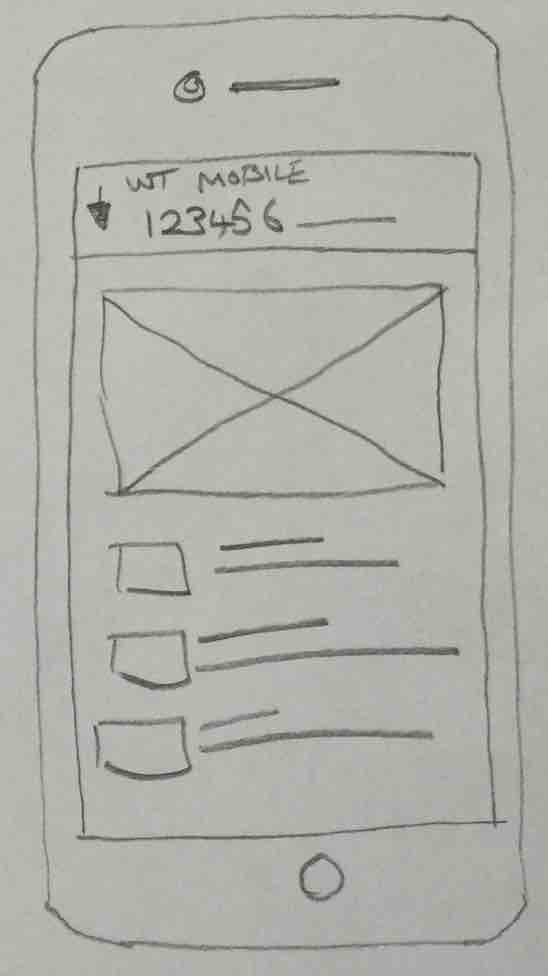 WT MOBILE
123456